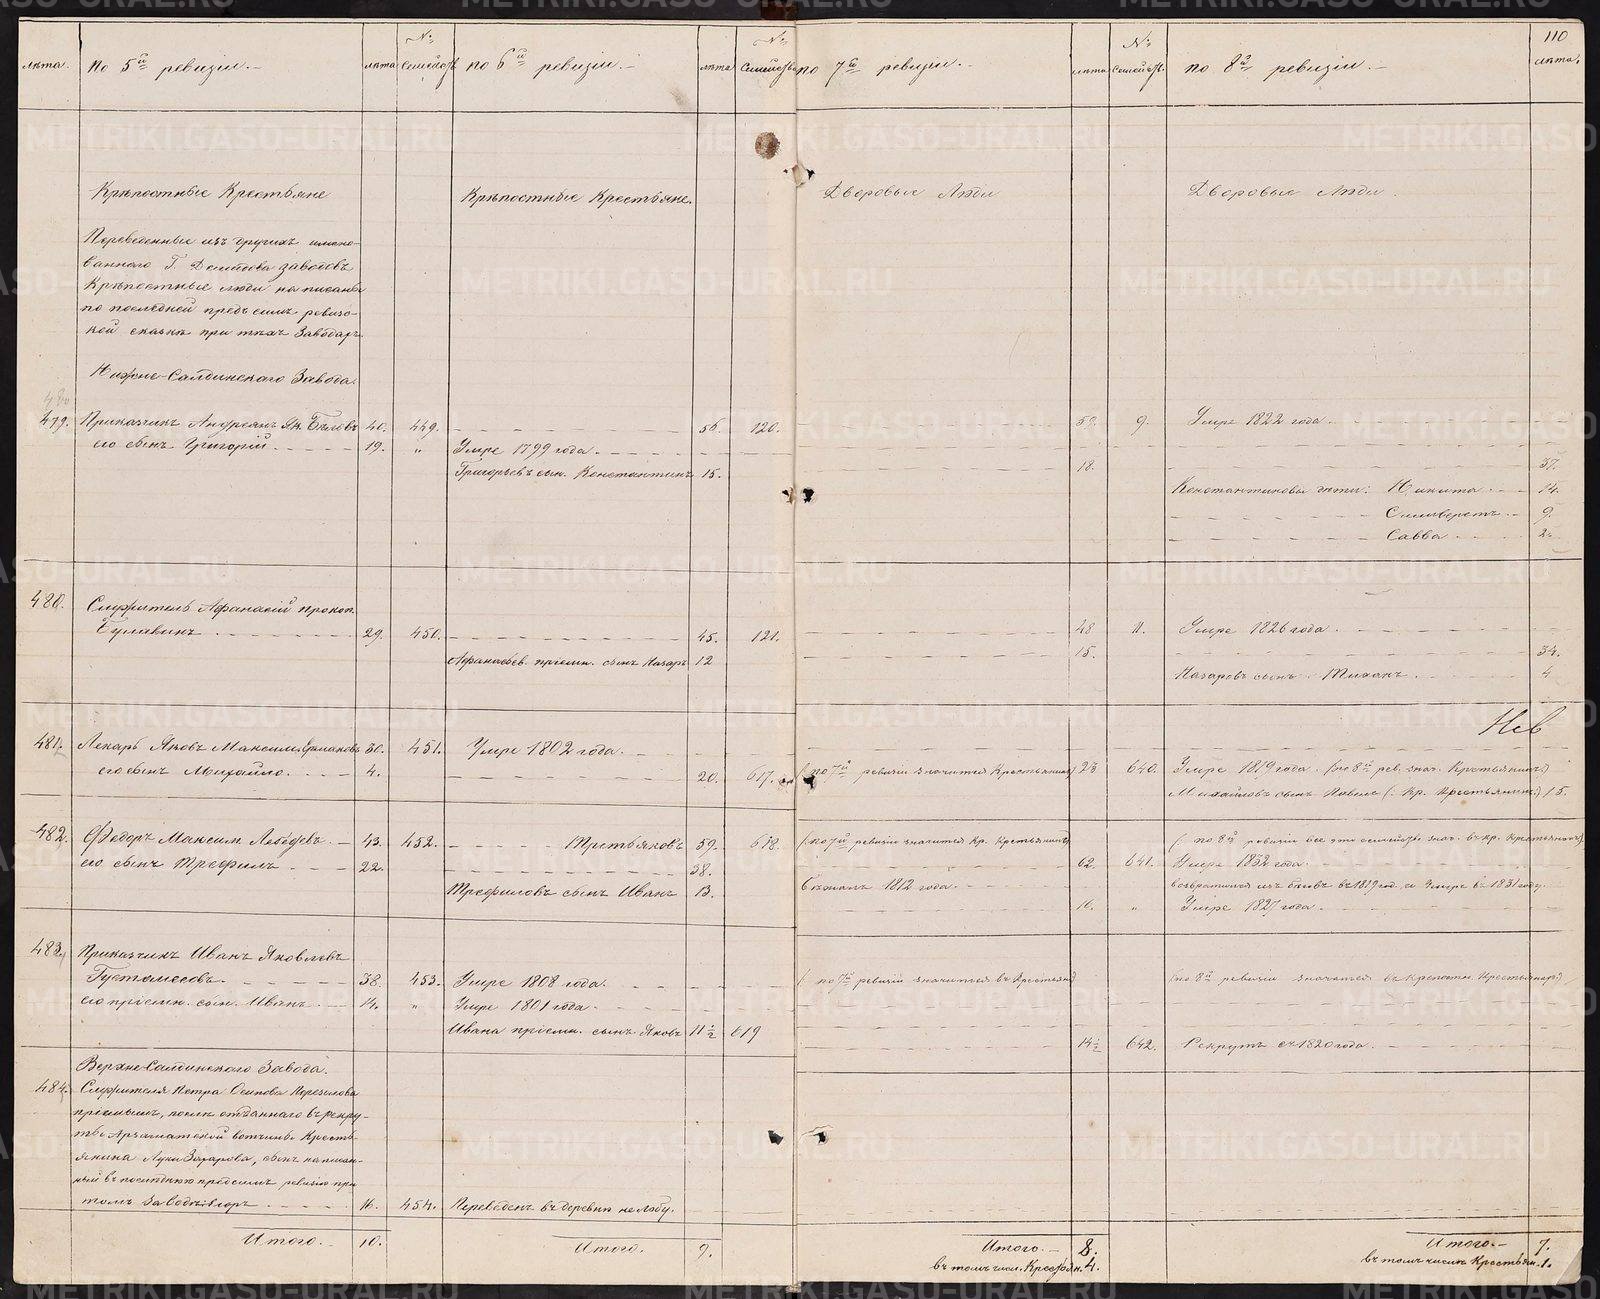 110
лѣта.
По 5й ревизіи.
лѣта
№ семейств
по 6й ревизіи.
лѣта
№ Семейства
по 7й ревизіи.
лѣта
№ Семейств.
по 8й ревизіи.
лѣта.
Крѣпостные Крестьяне
Крѣпостные Крестьяне.
Дворовые Люди
Дворовые Люди
Переведенные изъ другихъ имено-
ваннаго Г. Демидова заводовъ
Крѣпостные люди написаны
по последней предъ симъ ревизс-
кой сказкѣ при тѣхъ Заводахъ
Нижне-Салдинскаго Завода.
479. Приказчикъ Андреянъ Як. Бѣловъ 40. 449. 56. 120. 59. 9. Умре 1822 года.
его сынъ Григорій. 19. " Умре 1799 года.
Григорьевъ сын. Константинъ 15. 18. 37.
Константиновы дѣти: Никита 14.
Сильверстъ 9.
Савва 2.
480. Служитель Афанасій Прокоп.
Булавинъ 29. 450. 45. 121. 48 11. Умре 1826 года.
Афанасьев. пріемн. сынъ Назаръ 12 15. 34.
Назаровъ сынъ Тиханъ 4
Нев
481. Лекарь Яковъ Максим. Ермаковъ 30. 451. Умре 1802 года.
его сынъ Михайло. 4. 20. 617. (по 7й ревизіи значится Крестьянин.) 23 640. Умре 1819 года. (по 8й рев. знач. Крестьянин.)
Михайловъ сынъ Павелъ (: Кр. Крестьянин.) 15.
482. Федоръ Максим. Лебедевъ. 43. 452. Третьяковъ 59. 618. (по 7й ревизіи значится Кр. Крестьянинъ (: по 8й ревизіи все это семейство знач. въ кр. Крестьянахъ)
его сынъ Трефилъ 22. 38. 62. 641. Умре 1832 года.
Трефиловъ сынъ Иванъ 13. Бежалъ 1812 года. возвратился изъ бѣговъ въ 1819 год. и Умре въ 1831 году.
16. " Умре 1827 года.
483. Приказчикъ Иванъ Яковлевъ
Густомесовъ. 38. 453. Умре 1808 года. (по 7й ревизіи значится въ Крестьян) (по 8й ревизіи значится въ крепостн. Крестьянахъ)
его пріемн. сын. Иванъ. 14. " Умре 1801 года.
Ивана пріемн. сынъ Яковъ 11½ 619 14½ 642. Рекрутъ съ 1820 года.
Верхне-Салдинскаго Завода.
484. Служителя Петра Осипова
пріемышъ, после отданнаго въ рекру-
ты вотчины Кресть-
янина Луки Захарова, сынъ написан-
ный въ последнюю предъ симъ ревизію при
томъ Заводѣ 16. 454. Переведенъ въ деревню
Итого. 10.
Итого. 9.
Итого. 8.
въ томъ числ. Крестьян. 4.
Итого. 7.
въ томъ числѣ Крестьян. 1.
METRIKI.GASO-URAL.RU